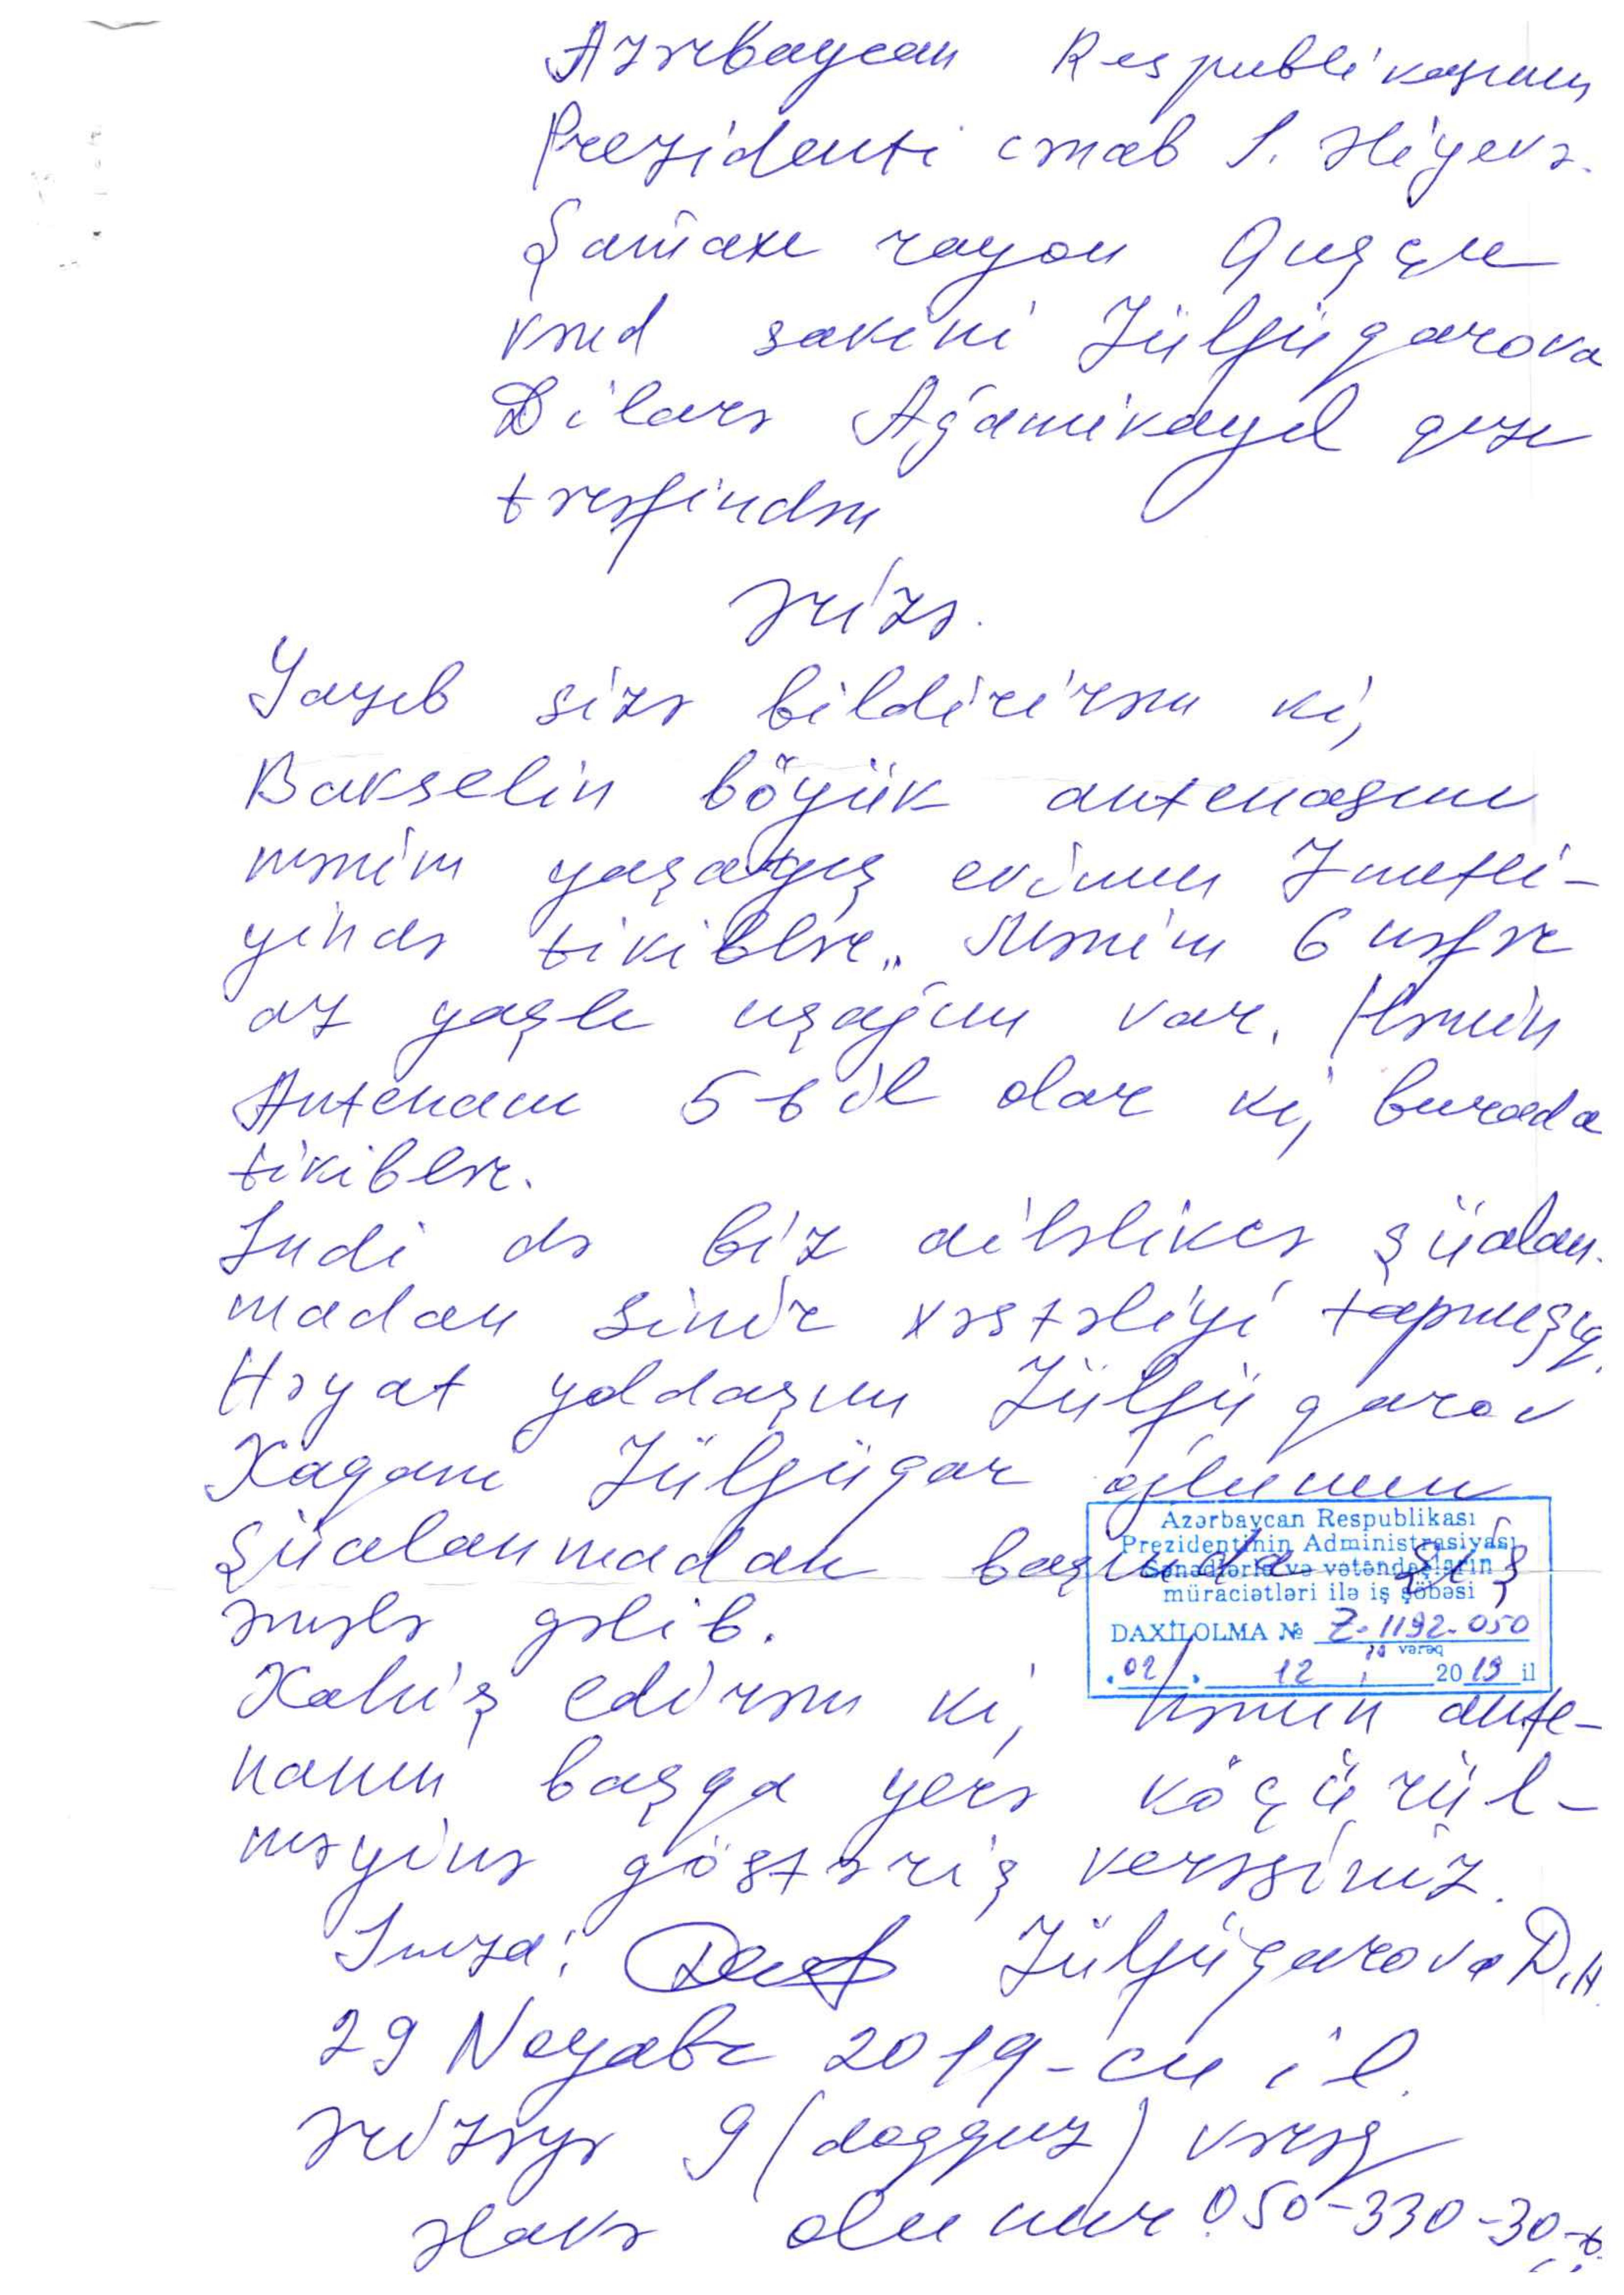 Azərbaycan Respublikasının
Prezidenti cənab İ. Əliyevə.
Şamaxı rayon Quşçu
kənd sakini Zülfüqarova
Dilarə Ağamikayıl qızı
tərəfindən
Ərizə.
Yazıb sizə bildirirəm ki,
Bakselin böyük antenasını
mənim yaşayış evimin
yində tikiblər. Mənim 6 nəfər
az yaşlı uşağım var. Həmin
Antenanı 5-6 il olar ki, burada
tikiblər.
İndi də biz ailəlikcə şüalan-
madan sinir xəstəliyi tapmışıq.
Həyat yoldaşım Zülfüqarov
Xaqani Zülfüqar oğlunun
şüalanmadan başında şiş
əmələ gəlib.
Xahiş edirəm ki, həmin ante-
nanın başqa yerə köçürül-
məyinə göstəriş verəsiniz.
İmza: Zülfüqarova D.A
29 Noyabr 2019-cu il.
Ərizəyə 9 (doqquz) vərəq
əlavə olunur 050-330-30-
Azərbaycan Respublikası
Prezidentinin Administrasiyası
Sənədlərlə və vətəndaşların
müraciətləri ilə iş şöbəsi
DAXİLOLMA № Z-1192-050
10 vərəq
02. 12. 2019 il